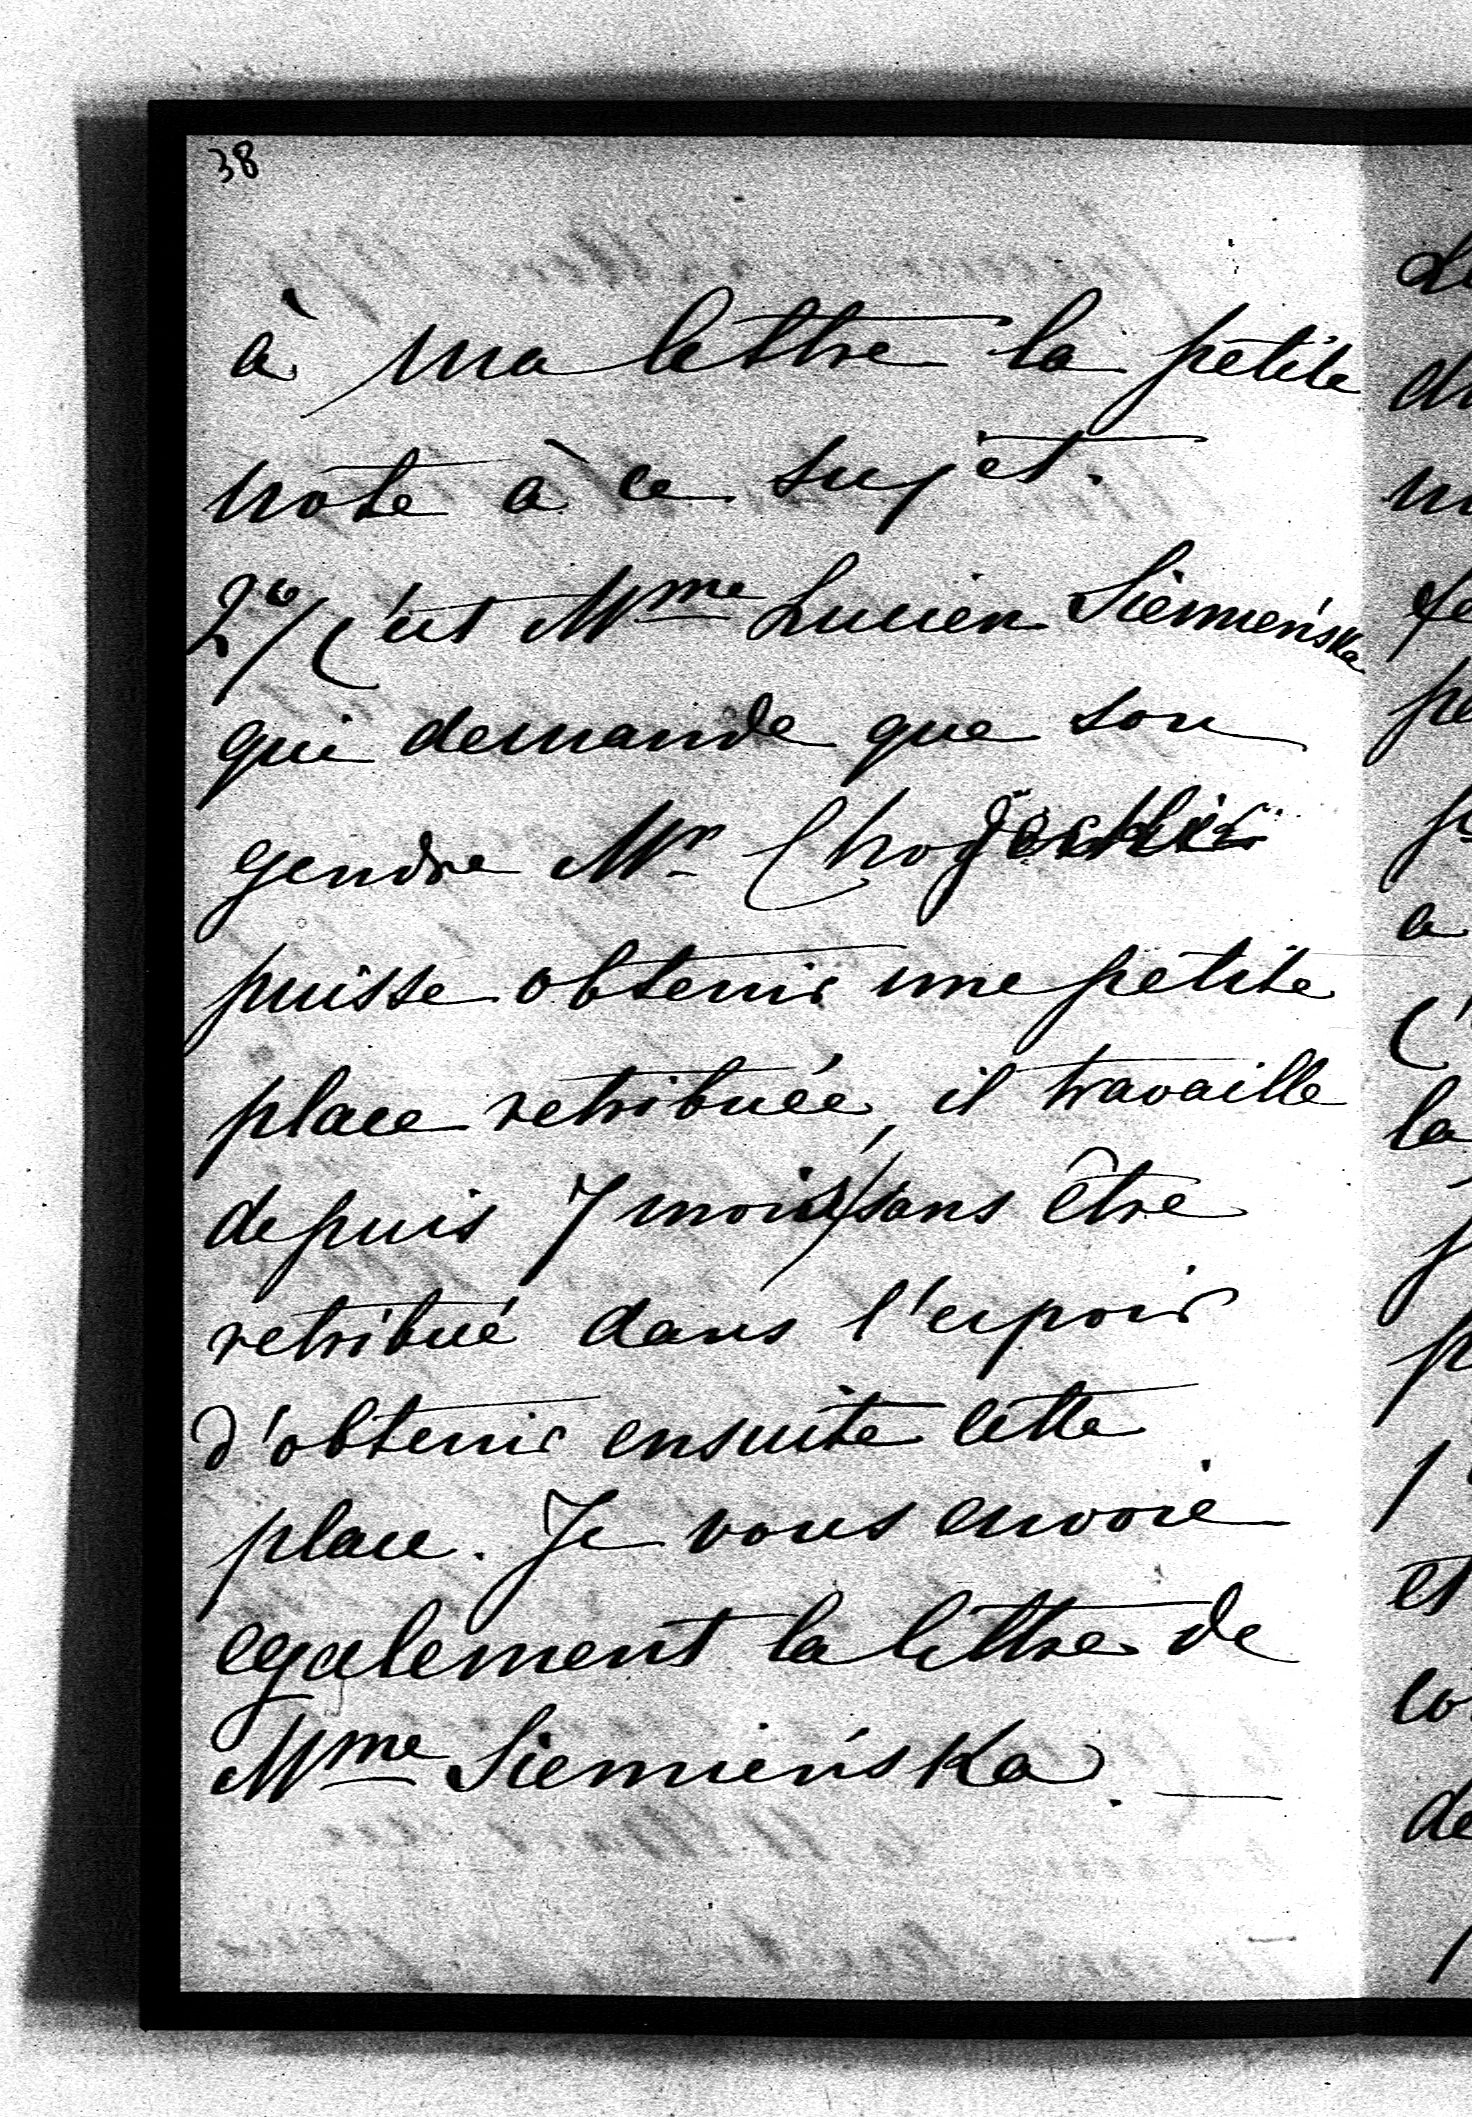 38
à ma lettre la petite
note à ce sujet.
2º/ C'est Mme Lucien Siemieńska
qui demande que son
gendre Mr
puisse obtenir une petite
place retribuée, il travaille
depuis 7 mois sans être
retribué dans l'espoir
d'obtenir ensuite cette
place. Je vous envoie
egalement la lettre de
Mme Siemieńska. —